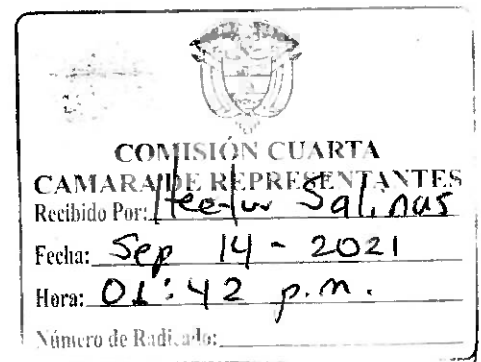 COMISIÓN CUARTA
CAMARA DE REPRESENTANTES
Recibido Por: Hector Salinas
Fecha: Sep 14 - 2021
Hora: 01:42 p.m.
Número de Radicado: